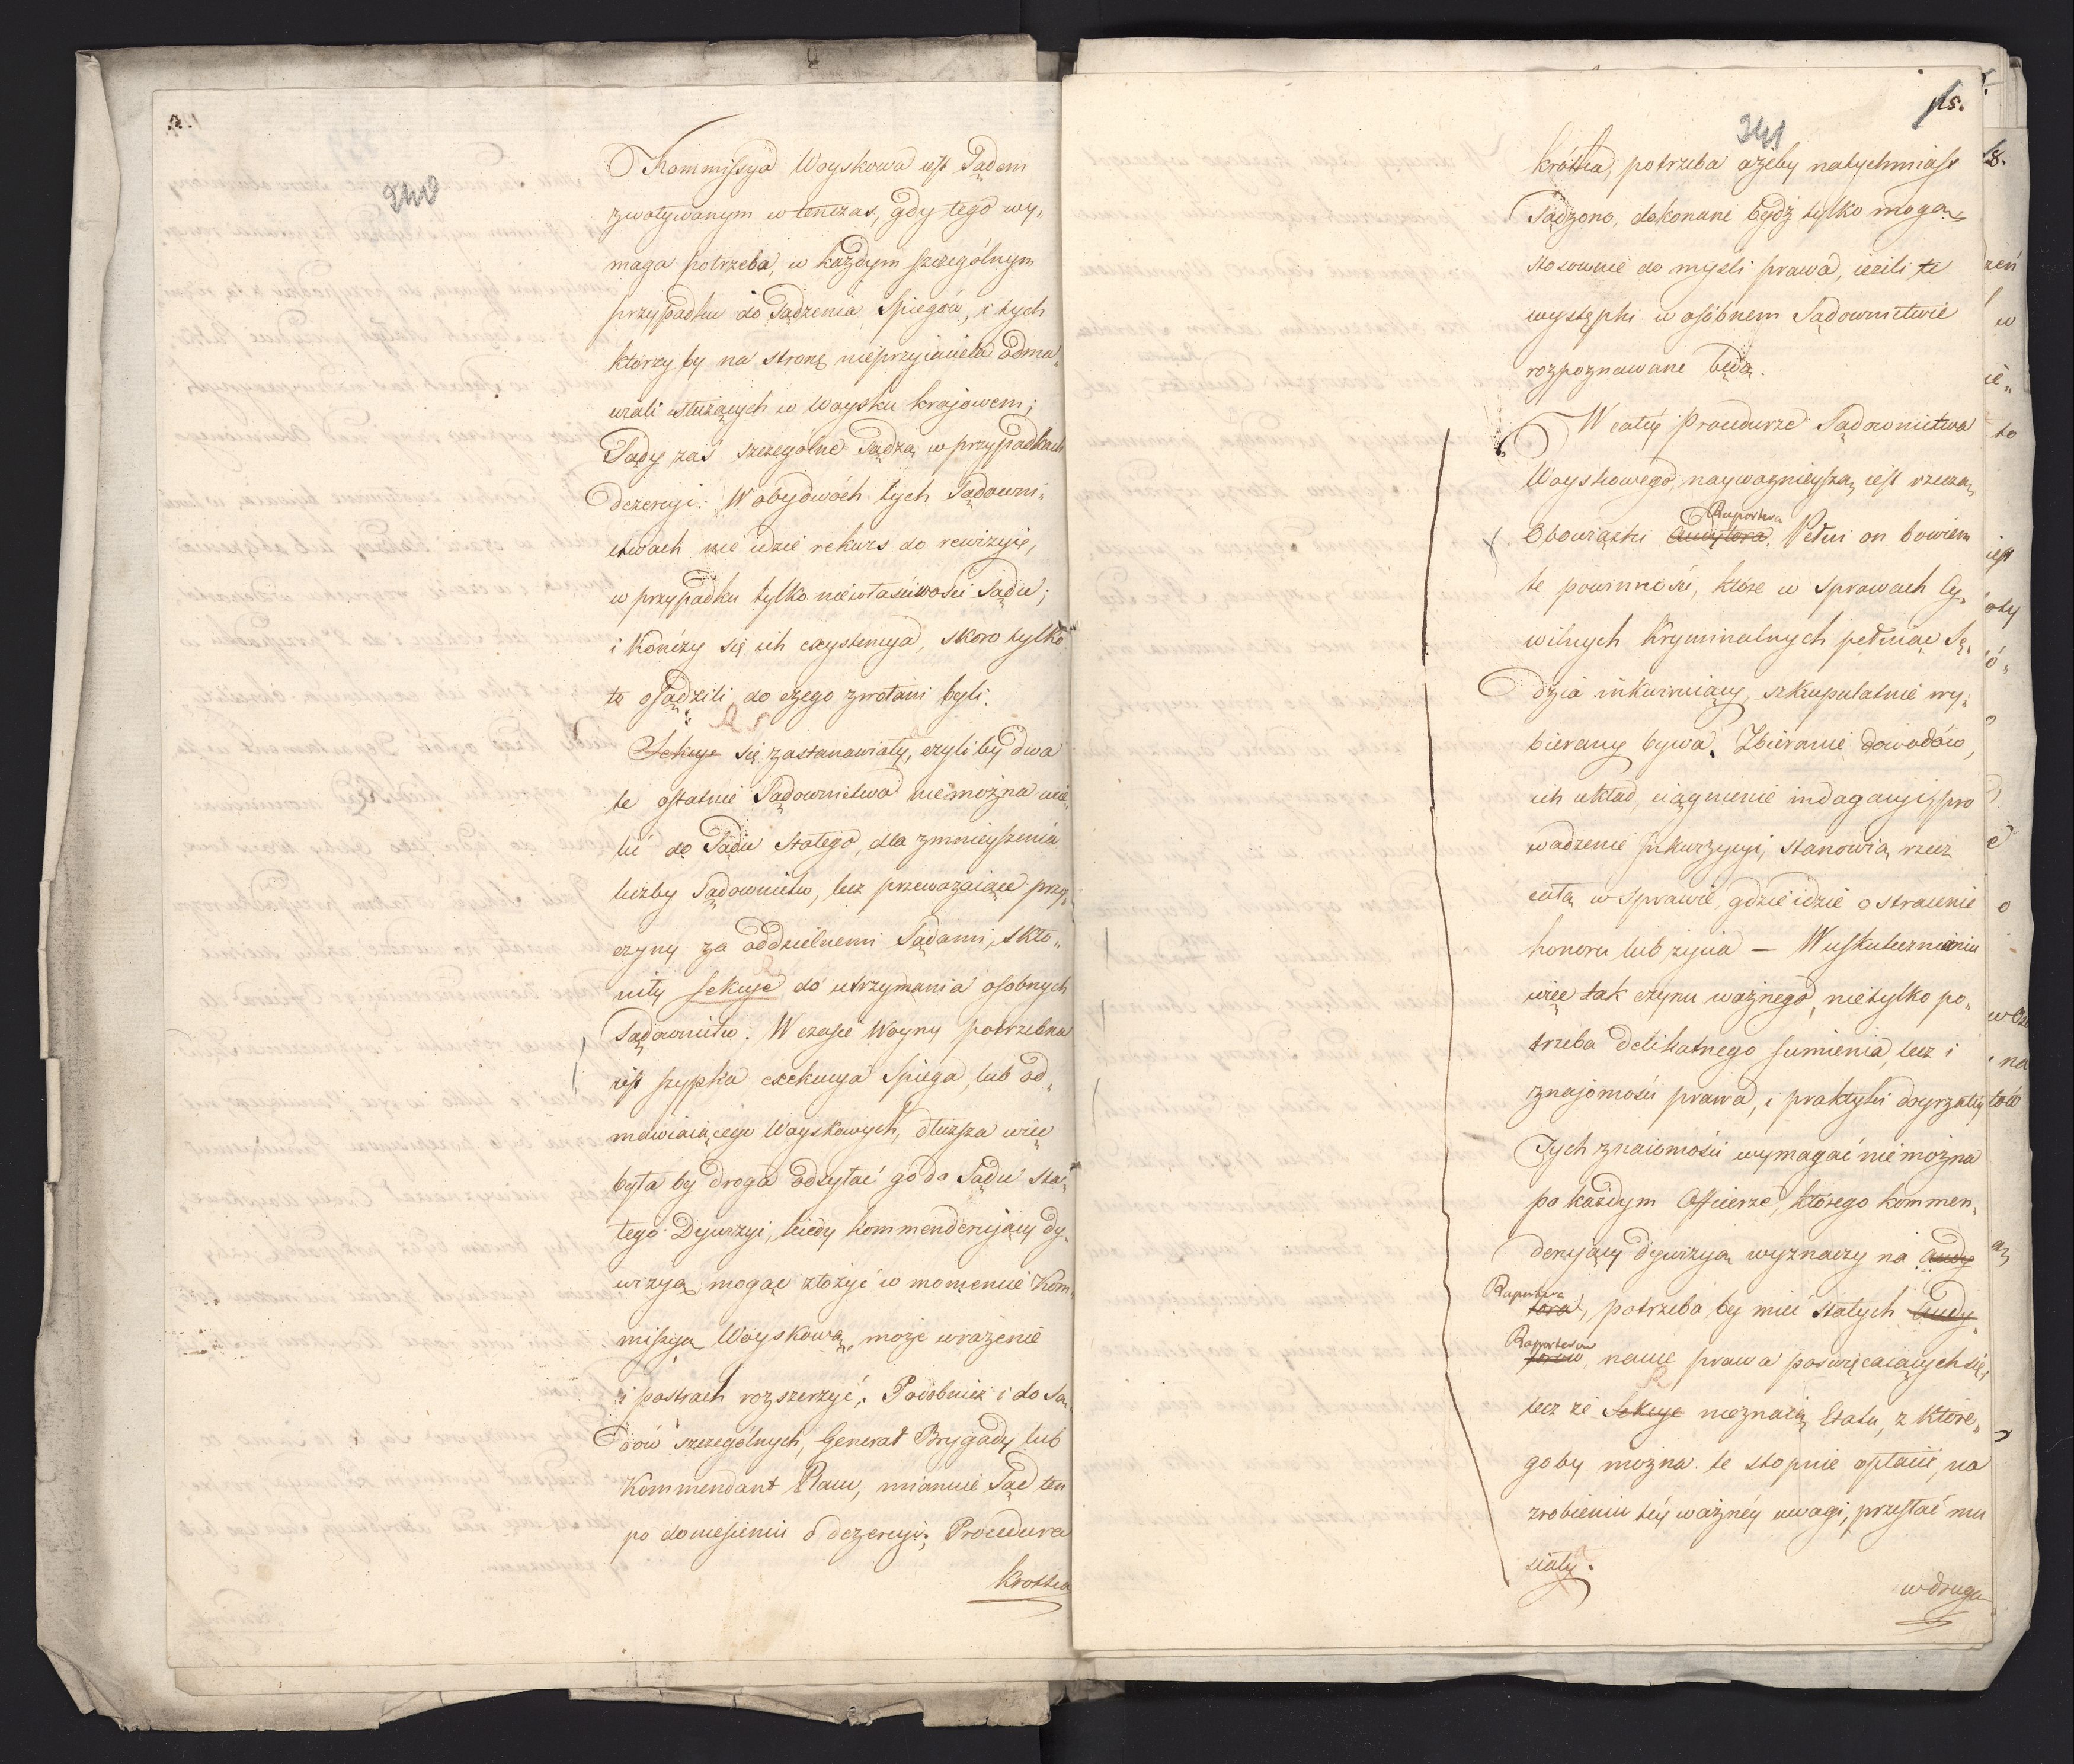 240
Kommissya Woyskowa iest Sądem
zwoływanym w tenczas, gdy tego wy„
maga potrzeba, w każdym szczególnym
przypadku do Sądzenia Spiegów, i tych
którzy by na stronę nieprzyiaciela odma„
wiali służących w Woysku krajowem;
Sądy zaś szczególne Sądzą w przypadkach
dezercyi. W obydwóch tych Sądowni„
ctwach nie idzie rekurs do rewizyię,
w przypadku tylko niewłaściwości Sądu;
i kończy się ich exystencya, skoro tylko
to osądzili, do czego zwołani byli.
Sekcye się zastanawiały, czyli by dwa
te ostatnie Sądownictwa nie można wcie„
lić do Sądu stałego, dla zmnieyszenia
liczby Sądownictw, lecz przeważaiące przy„
czyny za oddzielnemi Sądami, skło„
niły Sekcye do utrzymania osobnych
Sądownictw. W czasie Woyny potrzebna
iest szypka exekucya Spiega, lub od„
mawiaiącego Woyskowych, dłuższa więc
była by droga odsyłać go do Sądu sta„
łego Dywizyi, kiedy kommenderujący dy„
wizyą mogąc złożyć w momencie Kom„
missyą Woyskową, może wrażenie
i postrach rozszerzyć. Podobnież i do Są„
dów szczególnych, Generał Brygady lub
Kommendant Placu, mianuie Sąd ten
po doniesieniu o dezercyi; Procedura
krótka
115.
241
krótka, potrzeba ażeby natychmiast
Sądzono, dokonane bydź tylko mogą
stosownie do myśli prawa, ieżeli te
występki w osóbnem Sądownictwie
rozpoznawane będą.
W całéy Procedurze Sądownictwa
Woyskowego, nayważnieyszą iest rzeczą
Raportera
Obowiązki Audytora. Pełni on bowiem
te powinności, które w Sprawach Cy„
wilnych Kryminalnych pełniąc Sę„
dzia inkwiruiący, szkrupulatnie wy„
bierany bywa. Zbieranie dowodów,
ich układ, ciągnienie indagacyi, pro
wadzenie Inkwizycyi, stanowią rzecz
całą w Sprawie, gdzie idzie o stracenie
honoru lub życia — W uskutecznieniu
więc tak czynu ważnego, nie tylko po„
trzeba delikatnego sumienia, lecz i
znajomości prawa, i praktyki doyrzałéy
Tych znaiomości wymagać nie można
po każdym Officerze, którego kommen„
derujący dywizyą wyznaczy na Audy
Raportera
tora, potrzeba by mieć stałych Audy„
Raporterów
torów, nauce prawa poświęcaiących się,
lecz że Sekcye nieznaią Etatu, z które„
goby można te stopnie opłacić, na
zrobieniu téy ważnéy uwagi, przestać mu
siały.
w drugą